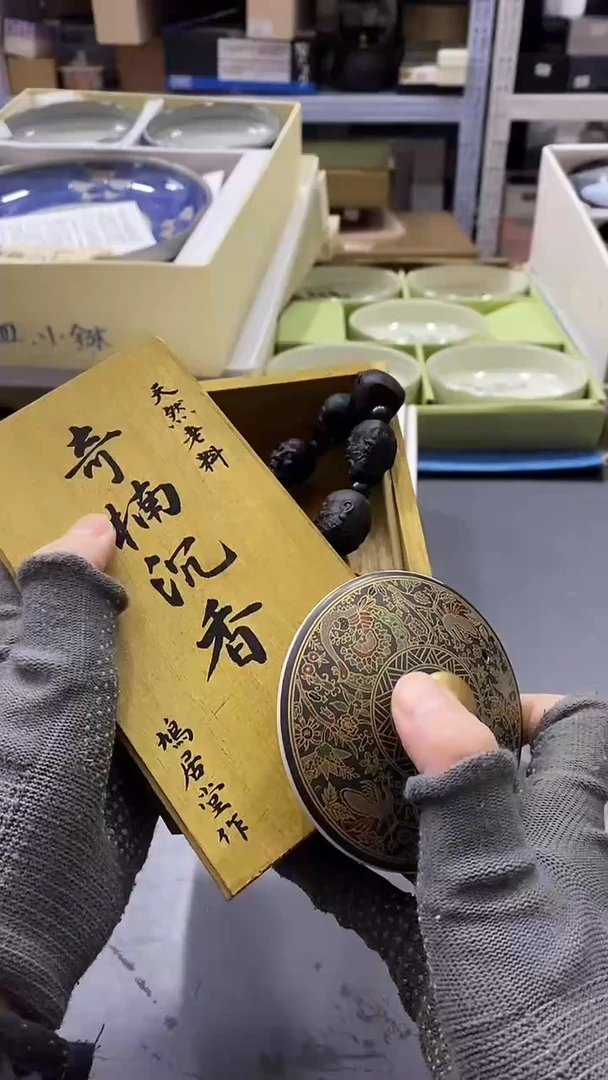 天然老料
奇楠沉香
鳩居堂作
皿.小鉢